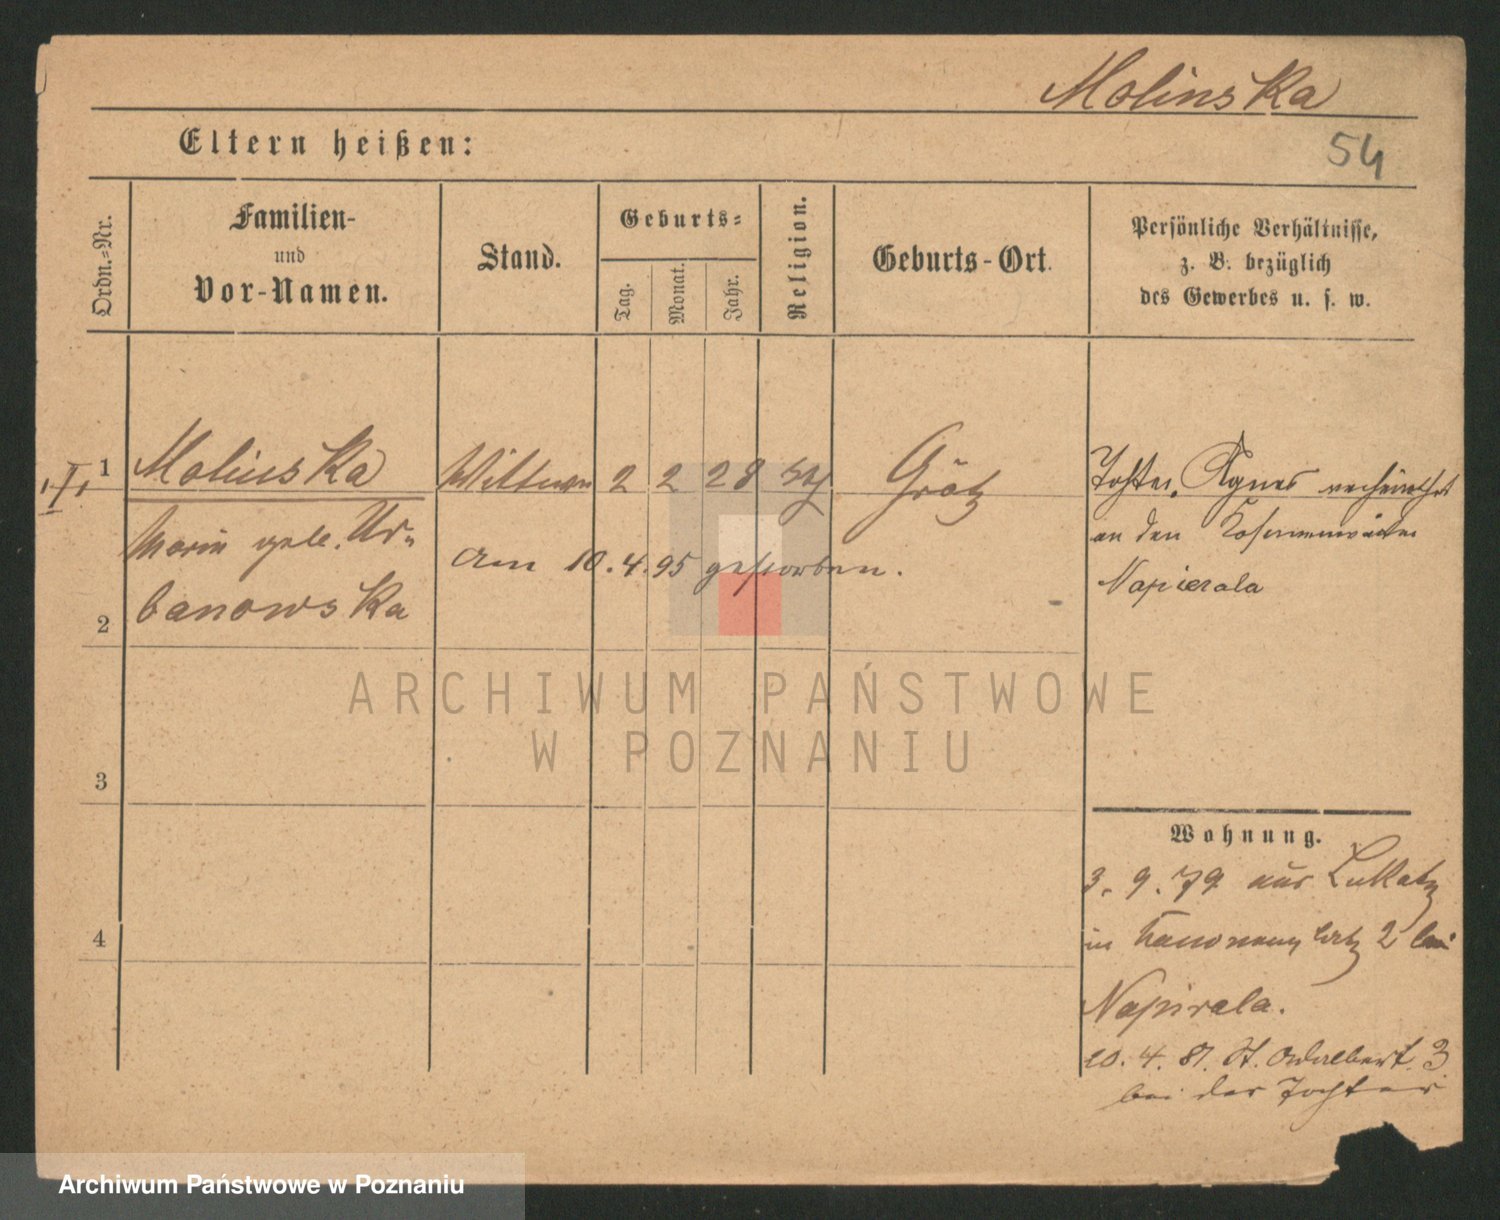 Molinska
54
Eltern heißen:
Ordn.-Nr.
Familien-
und
Vor-Namen.
Stand.
Geburts-
Tag.
Monat.
Jahr.
Religion.
Geburts-Ort.
Persönliche Verhältnisse,
z. B. bezüglich
des Gewerbes u. s. w.
I. 1 Molinska Wittwe 2 2 28 Grätz Tochter Agnes verheirathet
Marie geb. Ur-
an den
am 10.4.95 gestorben.
Napierala
2 banowska
3
Wohnung.
3. 9. 79 aus Lukatz
4
in Kanonenplatz 2 bei
Napirala.
20. 4. 81. St. Adalbert. 3
bei der Tochter
ARCHIWUM PAŃSTWOWE
W POZNANIU
Archiwum Państwowe w Poznaniu